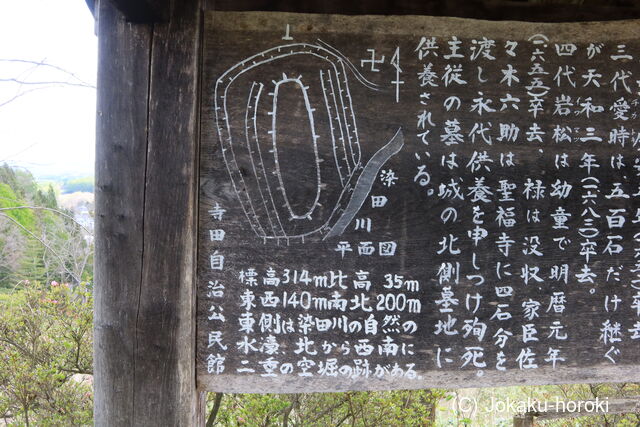 三代愛時は、五百石だけ継ぐ
が天和三年(一六八三)卒去。
四代岩松は幼童で明暦元年
(一六五五)卒去、禄は没収、家臣佐
々木六助は聖福寺に四石分を
渡し永代供養を申しつけ殉死。
主従の墓は城の北側墓地に
供養されている。
卍
染田川
平面図
標高314m比高35m
東西140m南北200m
東側は染田川の自然の
水濠、北から西南に
二重の空堀の跡がある。
寺田自治公民館
(C) Jokaku-horoki